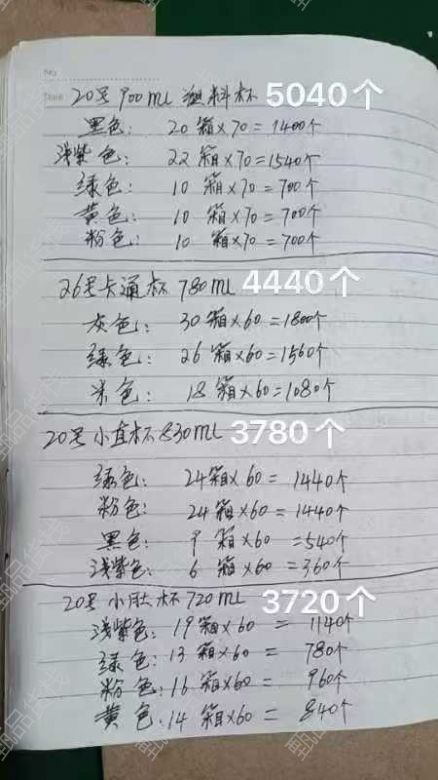 20号900ml 塑料杯 5040个
黑色: 20箱×70=1400个
浅紫色: 22箱×70=1540个
绿色: 10箱×70=700个
黄色: 10箱×70=700个
粉色: 10箱×70=700个
26号卡通杯 780ml 4440个
灰色: 30箱×60=1800个
绿色: 26箱×60=1560个
米色: 18箱×60=1080个
20号小直杯830ml 3780个
绿色: 24箱×60=1440个
粉色: 24箱×60=1440个
黑色: 9箱×60=540个
浅紫色: 6箱×60=360个
20号小肚杯720ml 3720个
浅紫色: 19箱×60=1140个
绿色: 13箱×60=780个
粉色: 16箱×60=960个
黄色: 14箱×60=840个